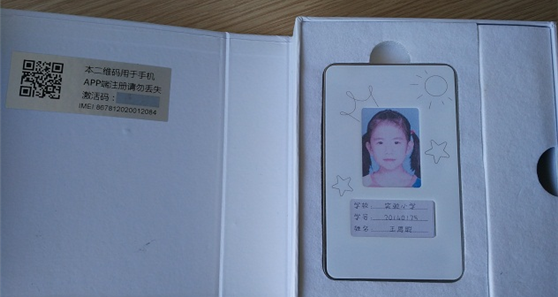 本二维码用于手机
APP端注册请勿丢失
激活码：
IMEI:867812020012084
学校：实验小学
学号：20140125
姓名：